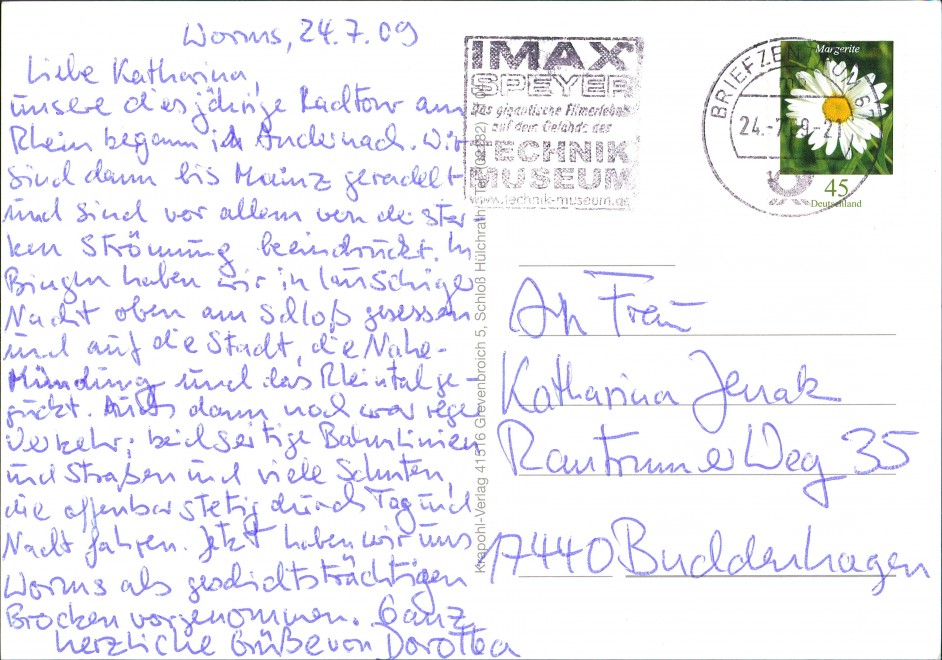 Worms, 24.7.09
Liebe Katharina,
unsere diesjährige Radtour am
Rhein begann in Andernach. Wir
sind dann bis Mainz geradelt
und sind vor allem von der star-
ken Strömung beeindruckt. In
Bingen haben wir in lauschiger
Nacht oben am Schloß gesessen
und auf die Stadt, die Nahe-
Mündung und das Rheintal ge-
guckt. Auch dann noch war reger
Verkehr; beidseitige Bahnlinien
und Straßen und viele Schuten,
die offenbar stetig durch Tag und
Nacht fahren. Jetzt haben wir uns
Worms als geschichtsträchtigen
Brocken vorgenommen. Ganz
herzliche Grüße von Dorothea
IMAX
SPEYER
Das gigantische Filmerlebnis
auf dem Gelände des
TECHNIK
MUSEUM
www.technik-museum.de
BRIEFZENTRUM 67
24.-7.09-21
Margerite
45
Deutschland
Krapohl-Verlag 41516 Grevenbroich 5, Schloß Hülchrath, Tel. (02182)
An Frau
Katharina Jenak
Rantrumer Weg 35
17440 Buddenhagen